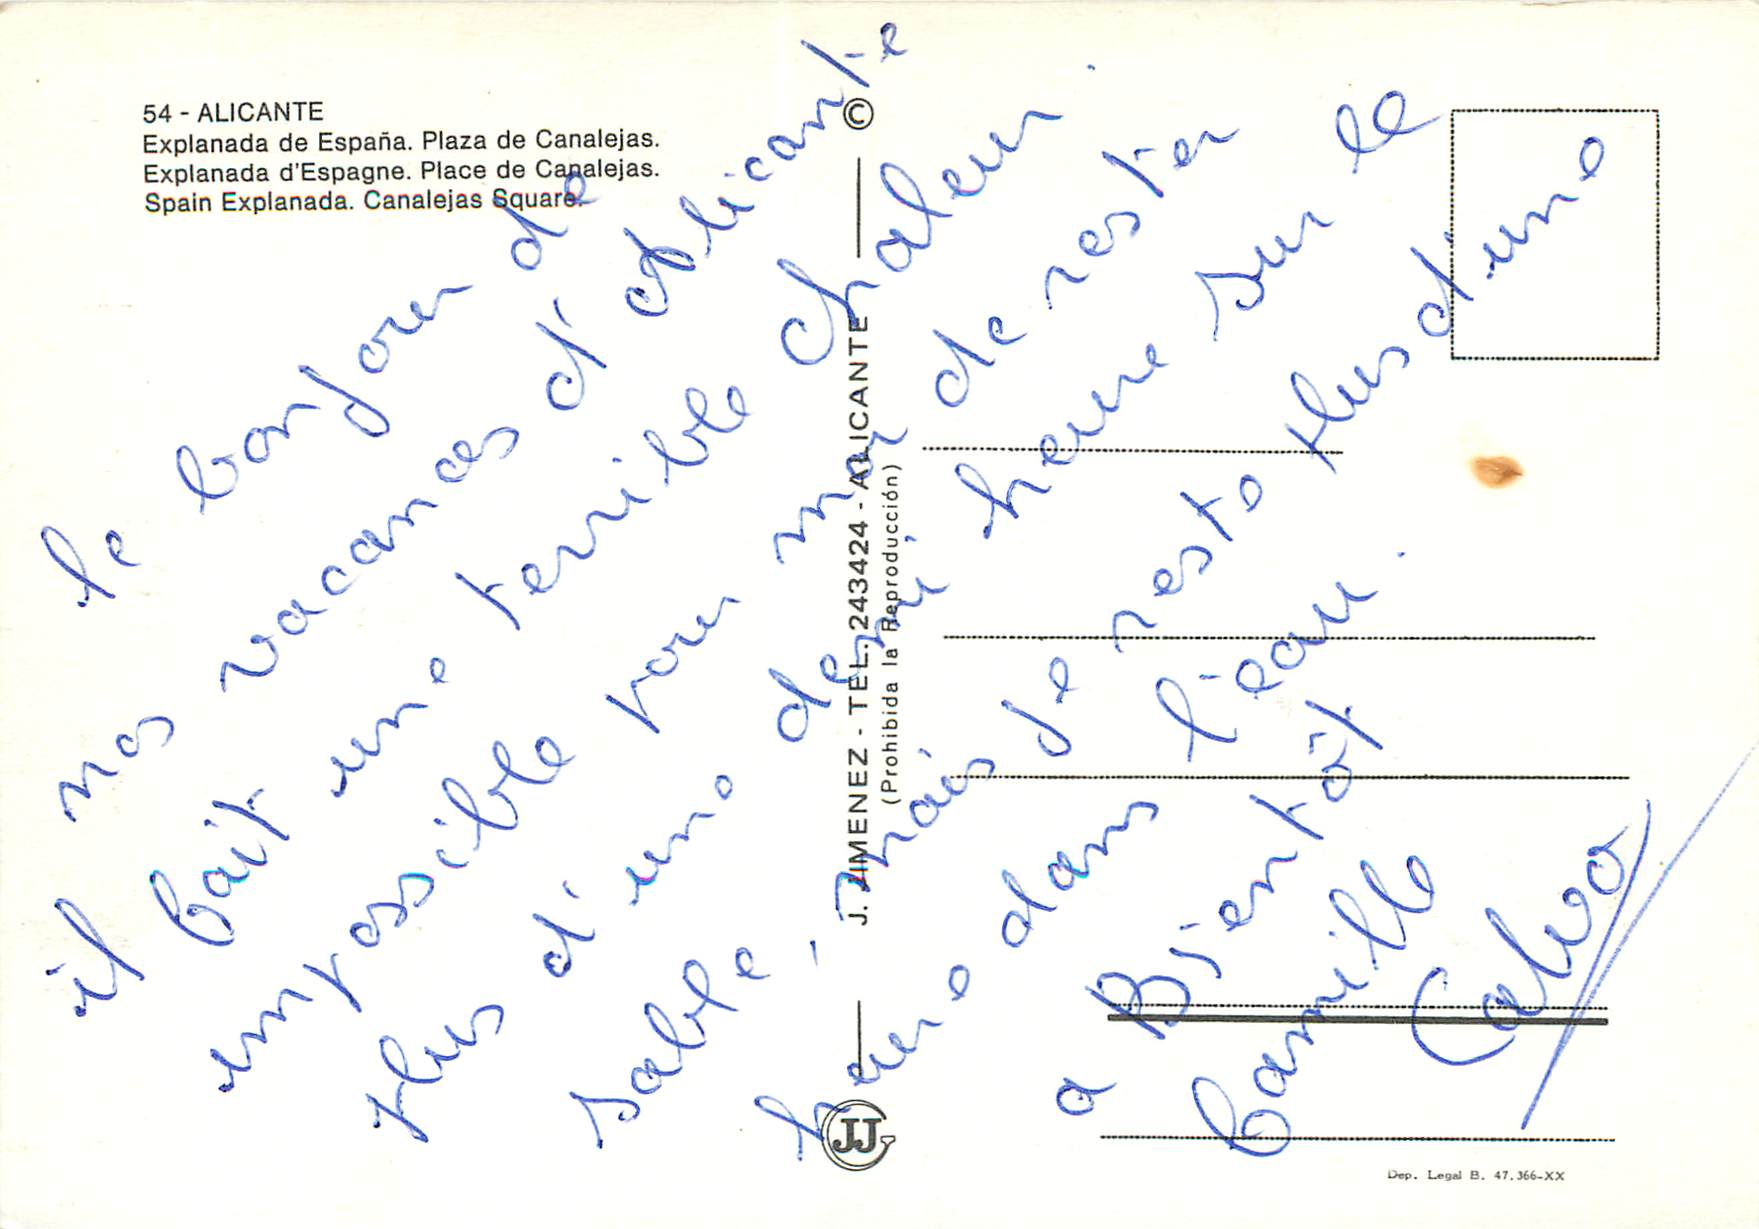 54 - ALICANTE
Explanada de España. Plaza de Canalejas.
Explanada d'Espagne. Place de Canalejas.
Spain Explanada. Canalejas Square.
le bonjour de
nos vacances d'Alicante
il fait une terrible chaleur
impossible pour moi de rester
plus d'une demi heure sur le
sable, mais je reste plus d'une
heure dans l'eau.
a Bientôt
Camille
Calvo
©
J. JIMENEZ - TEL. 243424 - ALICANTE
(Prohibida la Reproducción)
JJ
Dep. Legal B. 47.366-XX